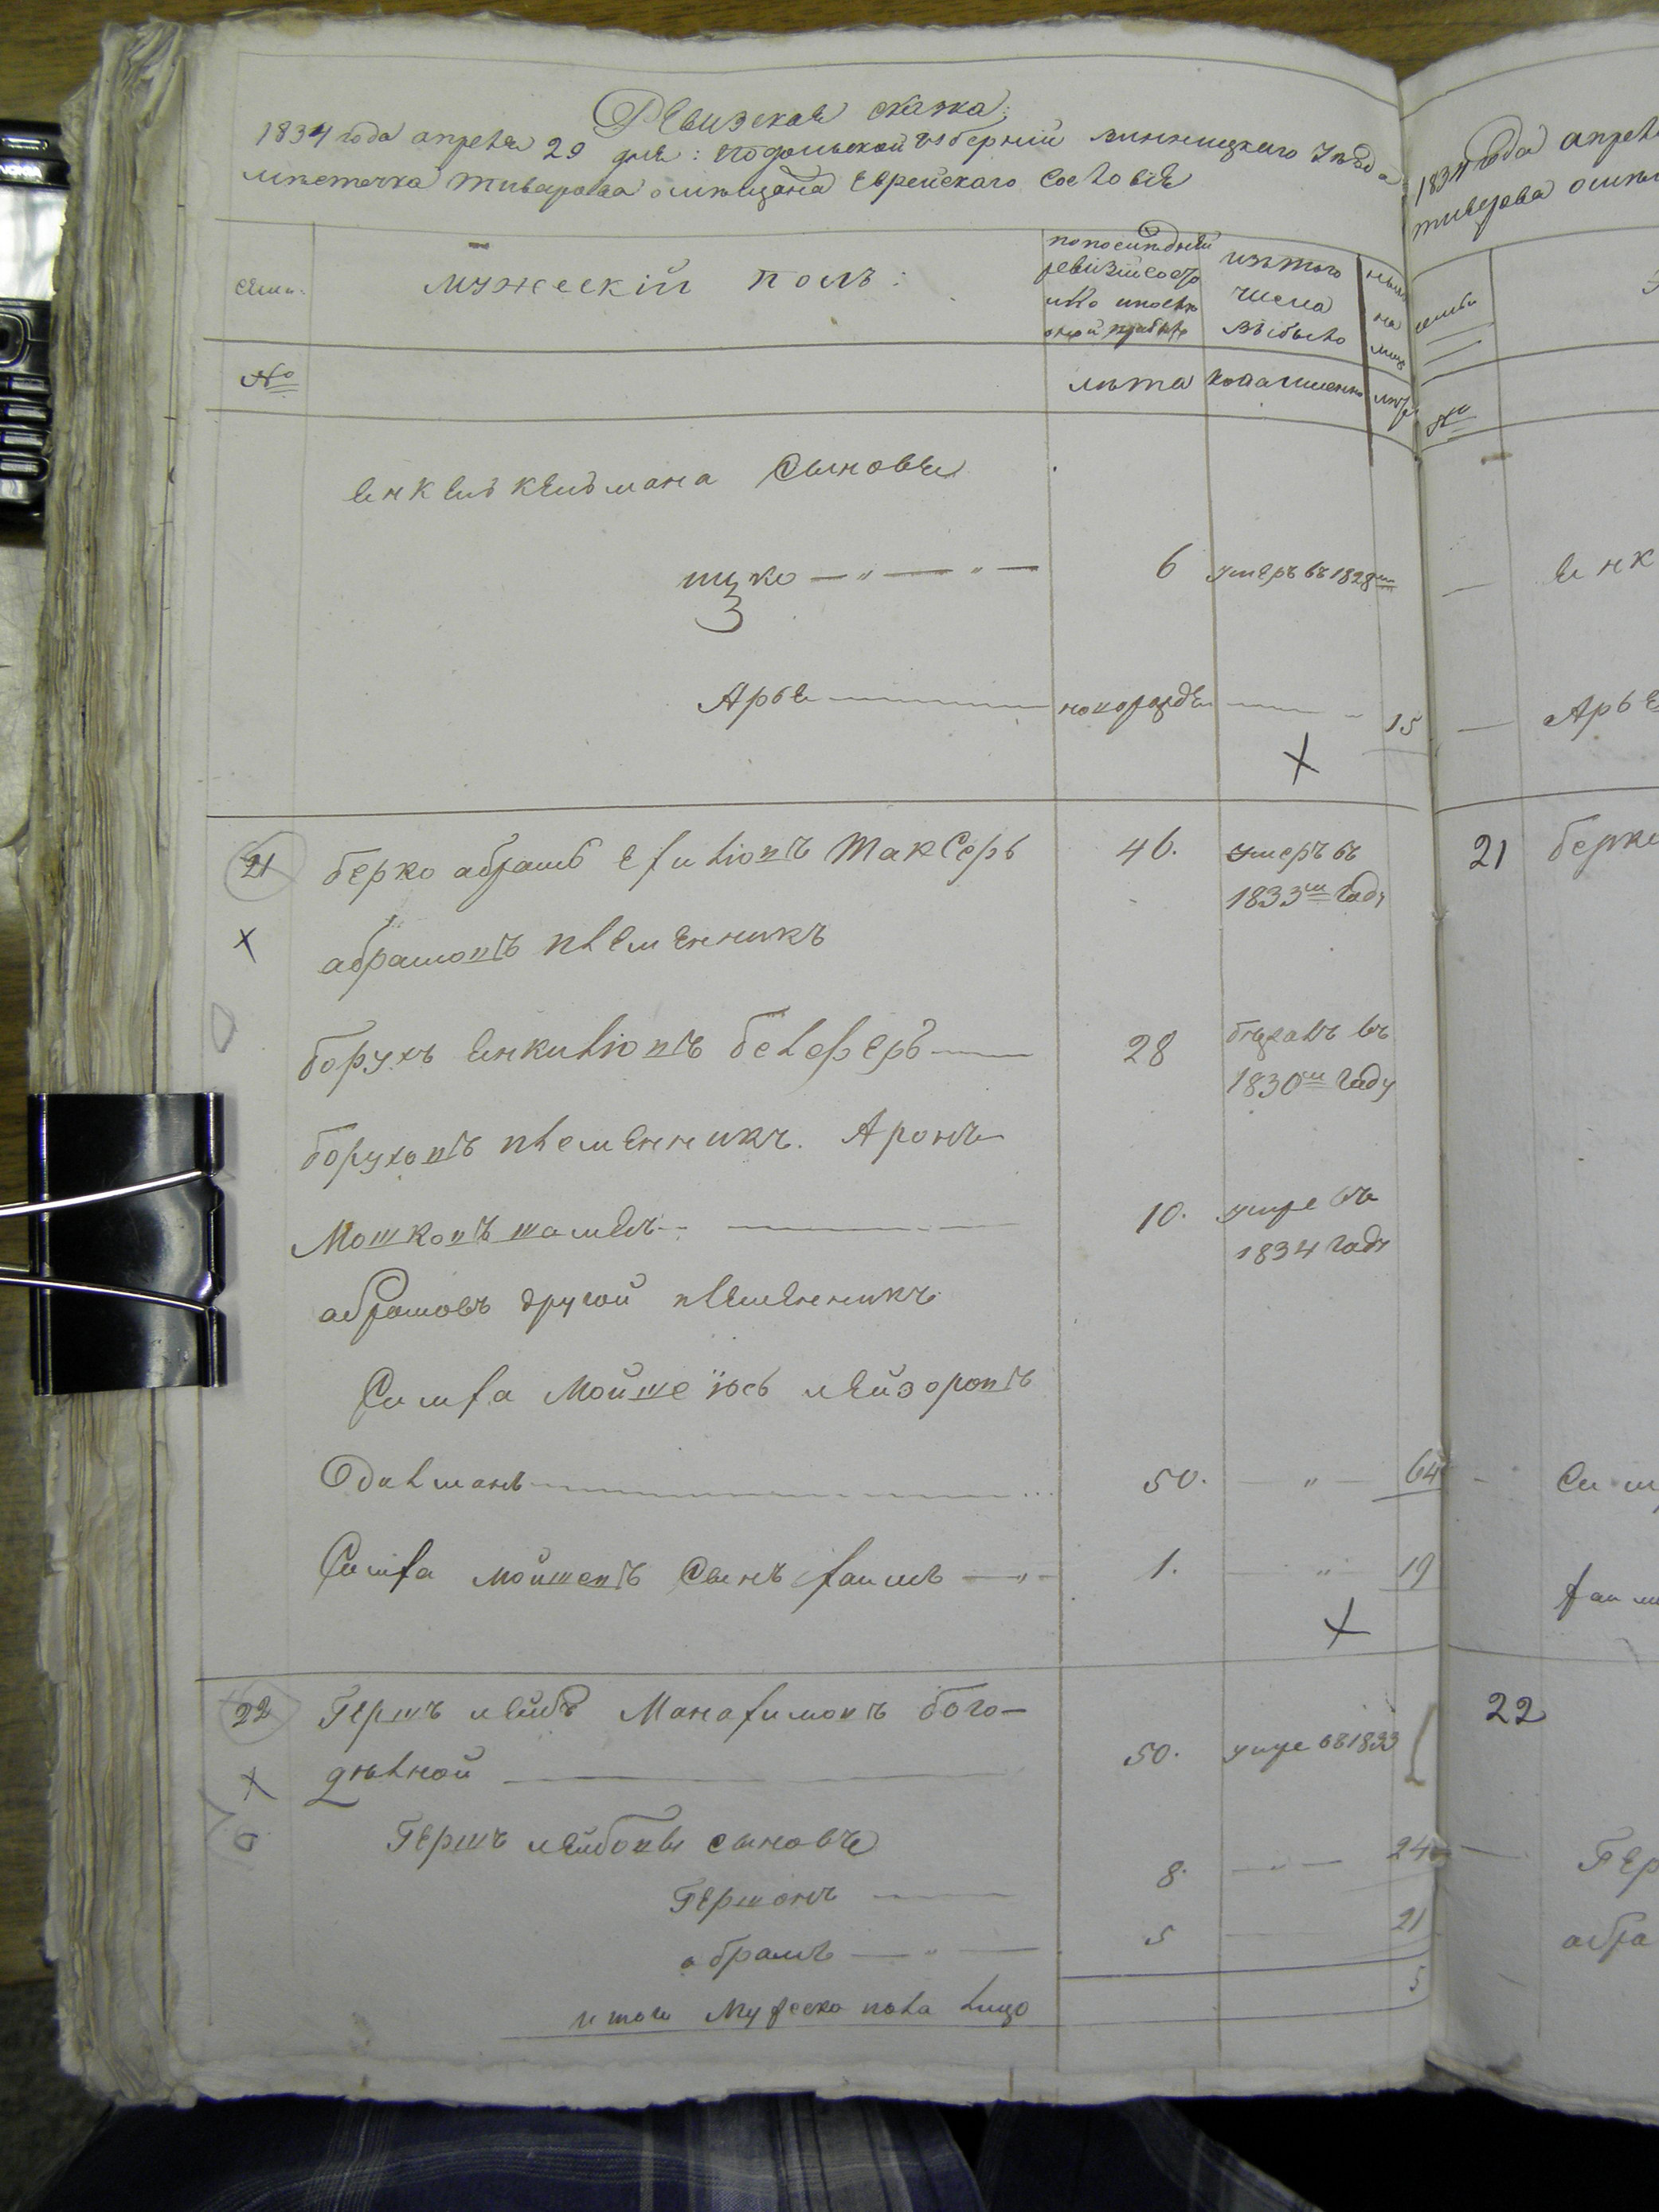 Ревизская сказка:
1834 года апреля 29 дня: подольской губернии винницкаго уезда
местечка тиврова о мещанах Еврейскаго Сословия
семьи мужескій полъ:
по последней ревизіи состояло и после оной прибыло
изъ того числа выбыло
ныне на лицо
№ лета когда именно лета
Енкель кельмана Сыновья
ицко — " — " — 6 умеръ въ 1828м
Арье — новорожде — 15
X
21 берко абрамъ Ехиліовъ таксеръ 46. умеръ въ
1833м Году
X абрамовъ племенникъ
борухъ Енкиліовъ белферъ — 28 бежалъ въ
1830м Году
боруховъ племенникъ. Аронъ
Мошковъ шамесъ — 10. умре въ
1834 Году
абрамовъ другой племенникъ
Симха Мойше іось лейзоровъ
Одалманъ — 50. — " — 64
Симха мойшевъ Сынъ хаимъ — " — 1. — " — 19
X
22 Гершъ лейбъ Манахимовъ бого-
дельной — 50. умре въ 1833
X
Гершъ лейбовы сыновья
Гершонъ — 8. — " — 24
абрамъ — " — 5 — 21
итого Мужеска пола лицо 5
1834 года апреля
тиврова о мещ
семьи
№
Енк
Арье
21 берко
Сим
хаим
22
Гер
абра